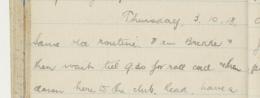 Thursday 3.10.18
Same old routine "
then wait till 9.30 for roll call then
down here to the club, read, have a